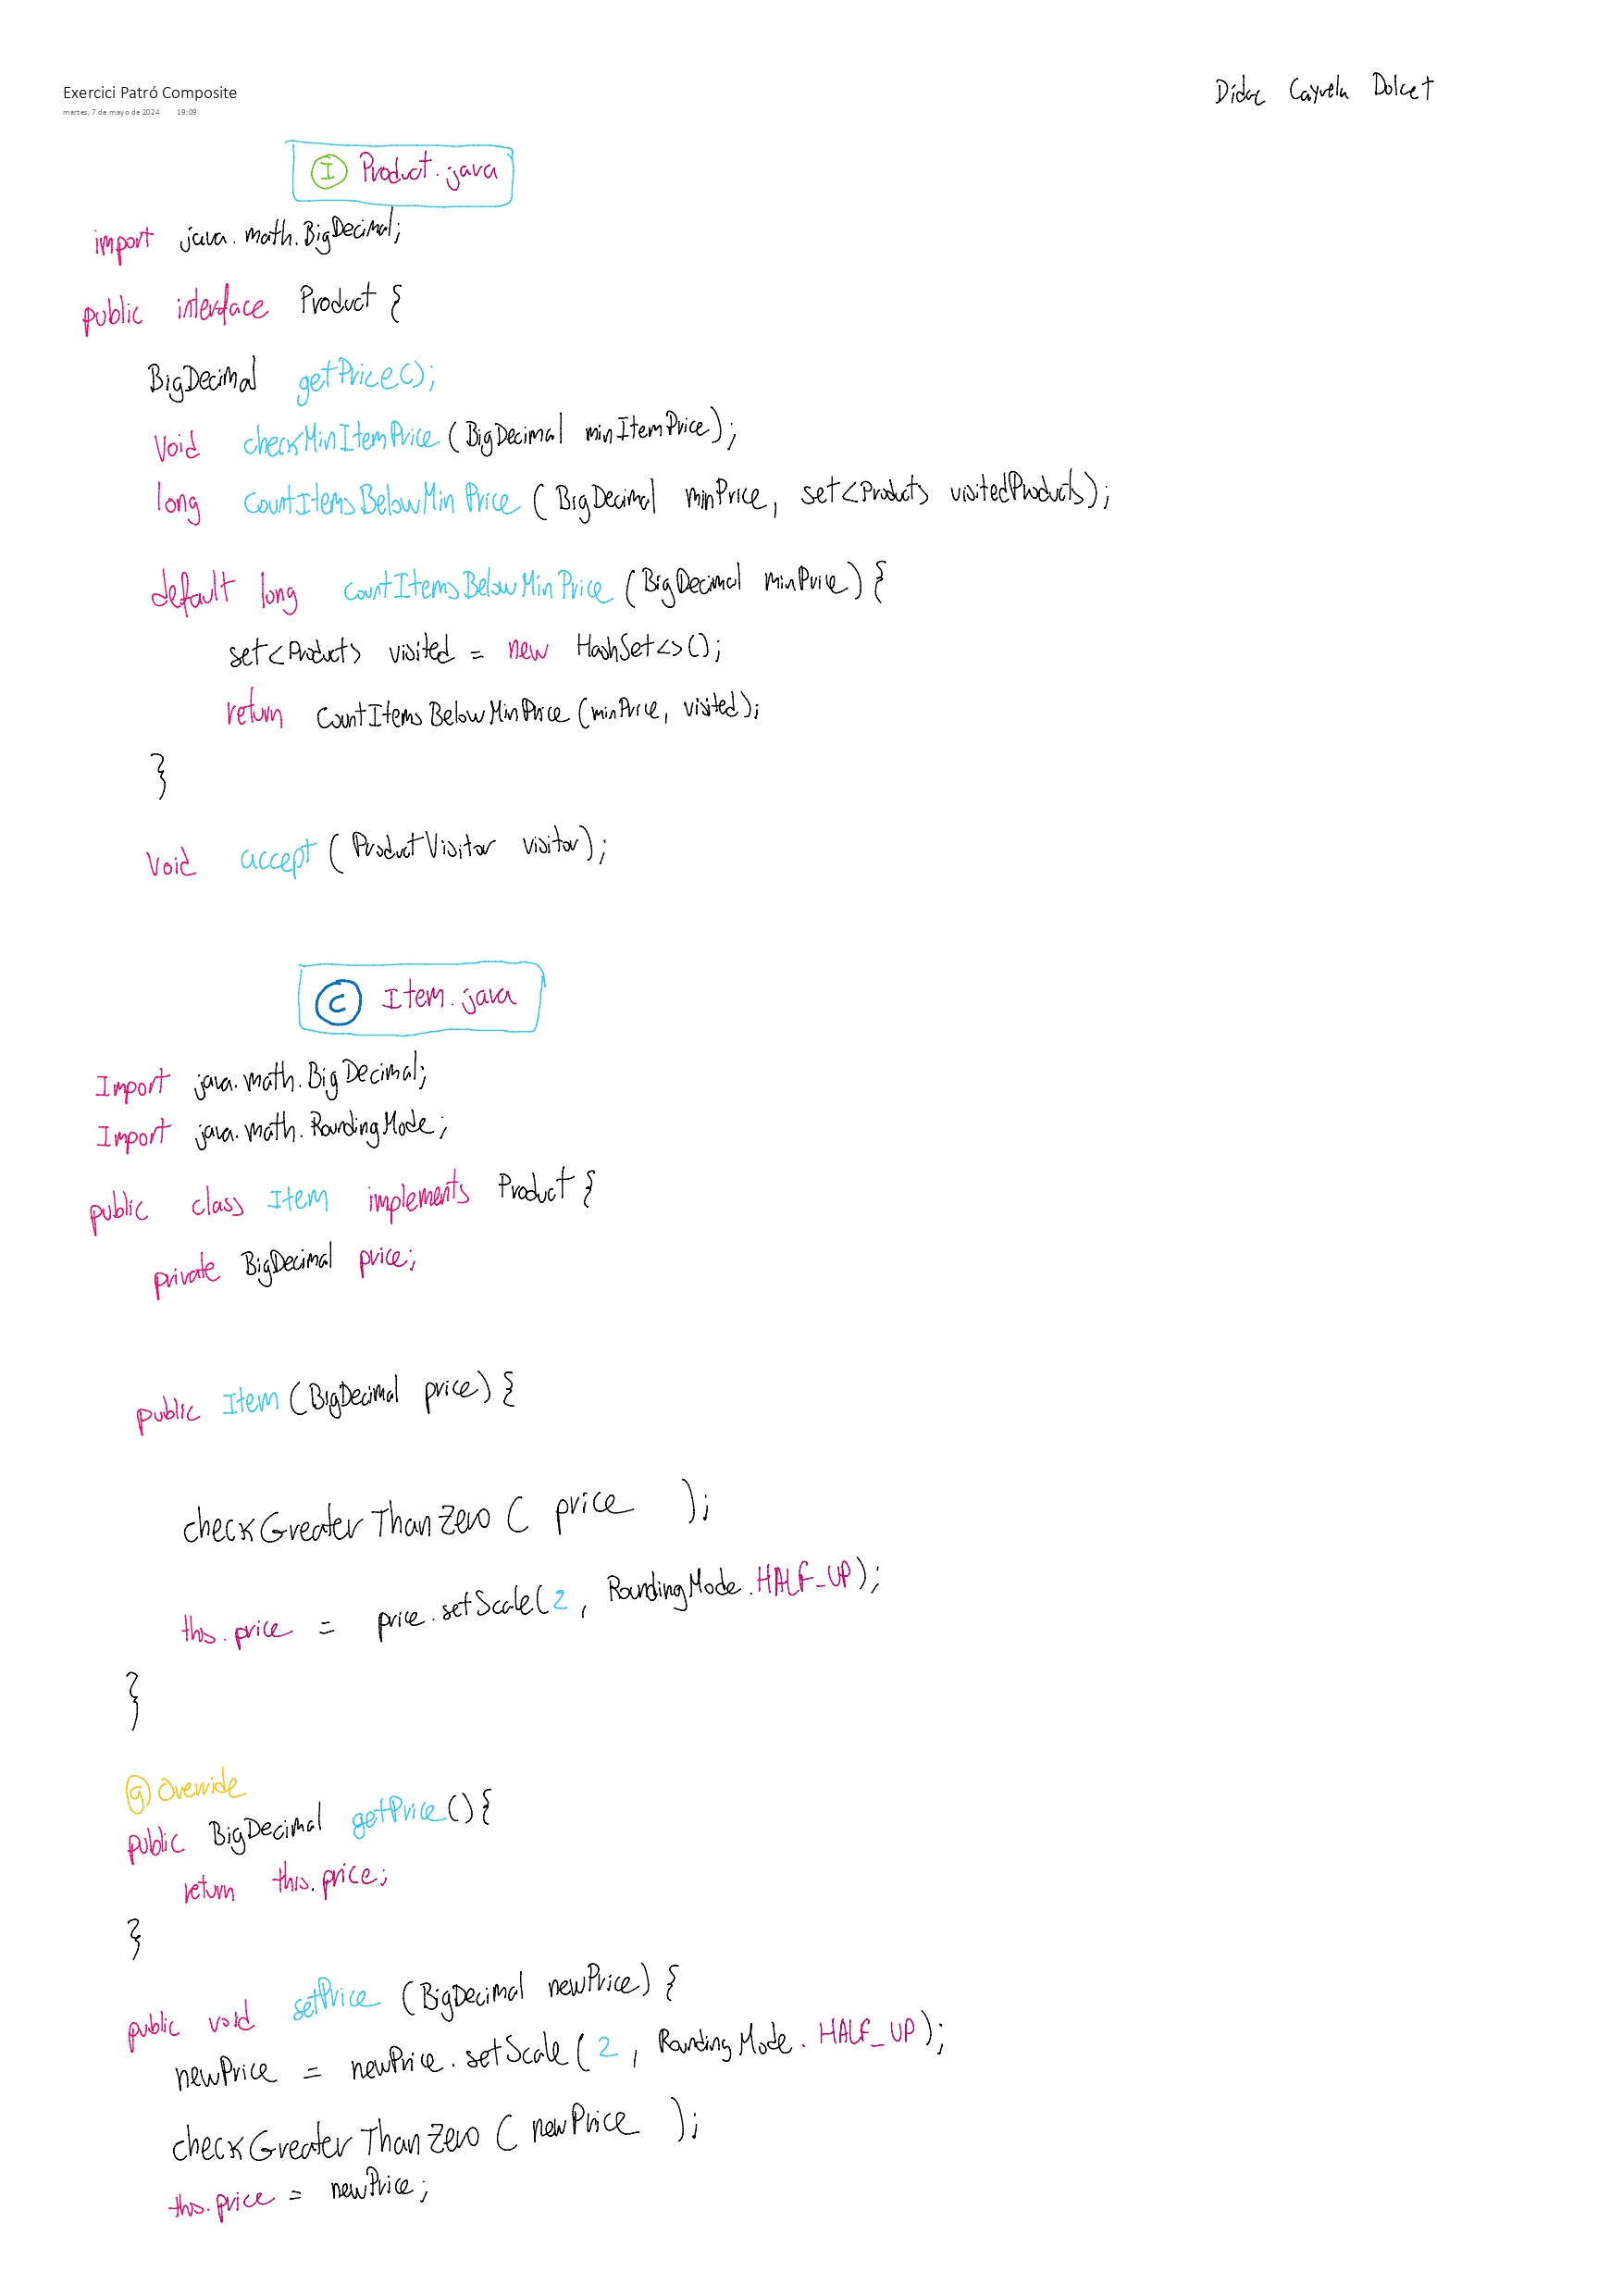 Exercici Patró Composite
martes, 7 de mayo de 2024 19:09
Dídac Cayuela Dolcet
I Product.java
import java.math.BigDecimal;
public interface Product {
BigDecimal getPrice();
Void checkMinItemPrice (BigDecimal minItemPrice);
long CountItemsBelowMinPrice (BigDecimal minPrice, set<Product> visitedProducts);
default long CountItemsBelowMinPrice (BigDecimal minPrice) {
set<Product> visited = new HashSet<>();
return CountItemsBelowMinPrice (minPrice, visited);
}
Void accept (ProductVisitor visitor);
C Item.java
Import java.math.BigDecimal;
Import java.math.RoundingMode;
public class Item implements Product {
private BigDecimal price;
public Item (BigDecimal price) {
checkGreaterThanZero ( price );
this.price = price.setScale(2, RoundingMode.HALF_UP);
}
@Override
public BigDecimal getPrice() {
return this.price;
}
public void setPrice (BigDecimal newPrice) {
newPrice = newPrice.setScale(2, RoundingMode.HALF_UP);
checkGreaterThanZero ( newPrice );
this.price = newPrice;